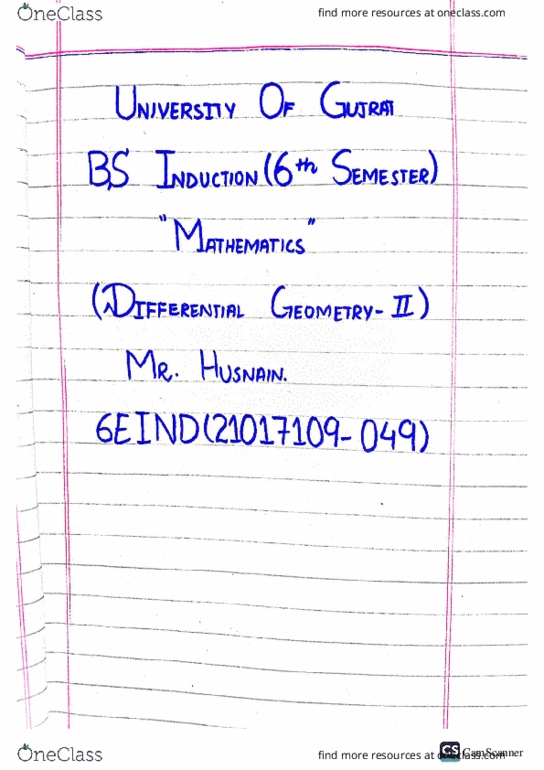 OneClass
find more resources at oneclass.com
UNIVERSITY OF GUJRAT
BS INDUCTION (6th SEMESTER)
"MATHEMATICS"
(DIFFERENTIAL GEOMETRY-II)
MR. HUSNAIN.
6EIND(21017109-049)
OneClass
find more resources at oneclass.com
CS CamScanner